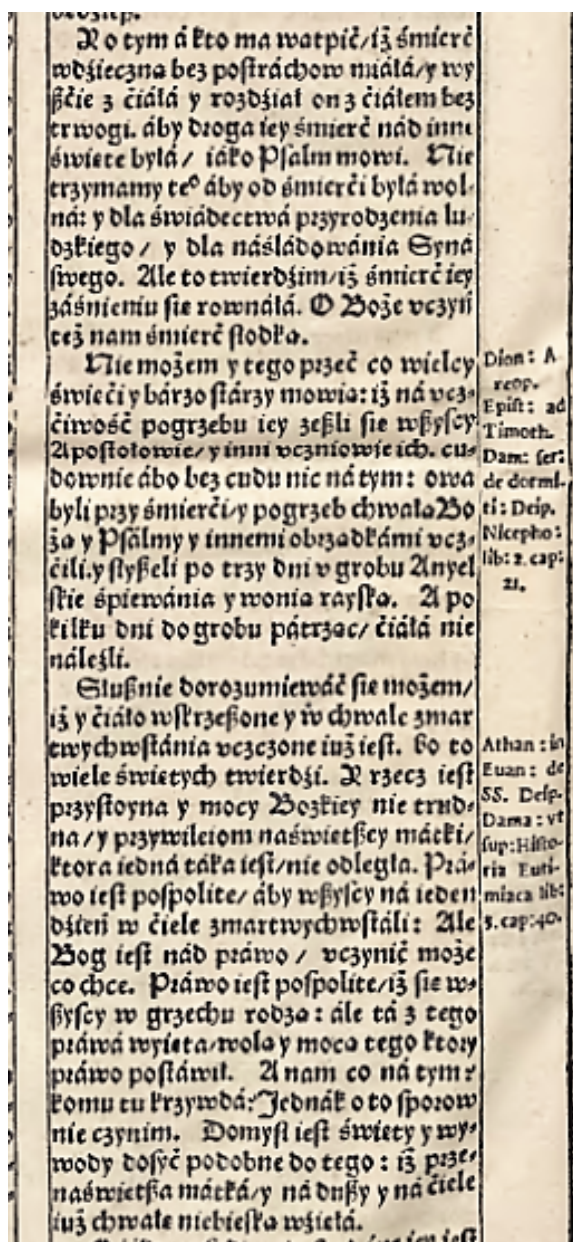 A o tym á kto ma wątpić/iż śmierć
wdźięczną bez postráchow miáłá/y wy
ßćie z ćiáłá y rozdźiał on z ćiáłem bez
trwogi. áby droga iey śmierć nád inne
święte byłá/ iáko Psalm mowi. Nie
trzymamy te° áby od śmierći byłá wol-
ná: y dla świádectwá przyrodzenia lu-
dzkiego/ y dla náśládowánia Syná
swego. Ale to twierdźim/iż śmierć iey
záśnieniu sie rownáłá. O Boże vczyń
też nam śmierć słodką.
Nie możem y tego przeć co wielcy
święći y bárzo stárzy mowią: iż ná vcz-
ćiwość pogrzebu iey zeßli sie wßyscy
Apostołowie/ y inni vczniowie ich. cu-
downie ábo bez cudu nic ná tym: owa
byli przy śmierći/y pogrzeb chwałą Bo
żą y Psálmy y innemi obrządkámi vcz-
ćili.y słyßeli po trzy dni v grobu Anyel
skie śpiewánia y wonią rayską. A po
kilku dni do grobu pátrząc/ ćiáłá nie
náleźli.
Słußnie dorozumiewáć sie możem/
iż y ćiáło wskrzeßone y w chwale zmar
twychwstánia vczczone iuż iest. bo to
wiele świętych twierdźi. Y rzecz iest
przystoyna y mocy Bozkiey nie trud-
na/y przywileiom naświętßey mátki/
ktora iedná táka iest/nie odległa. Prá-
wo iest pospolite/ áby wßyscy ná ieden
dźień w ćiele zmartwychwstáli: Ale
Bog iest nád práwo / vczynić może
co chce. Práwo iest pospolite/iż sie w-
ßyscy w grzechu rodzą: ále tá z tego
práwá wyięta/wolą y mocą tego ktory
práwo postáwił. A nam co ná tym?
komu tu krzywdá? Jednák o to sporow
nie czynim. Domysł iest święty y wy-
wody dosyć podobne do tego: iż prze-
naświętßa mátká/y ná dußy y ná ćiele
iuż chwałę niebieską wźięłá.
Dion: A
reop.
Epist: ad
Timoth.
Dam: ser:
de dormi-
ti: Deip.
Nicepho:
lib: 2. cap:
21.
Athan: in
Euan: de
SS. Deip.
Dama: vt
sup: Histo-
ria Euti-
miaca lib:
3. cap: 40.